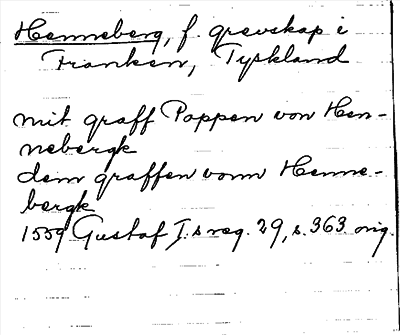 Henneberg, f. grevskap i
Franken, Tyskland
mit graff Poppen von Hen-
nebergk
dem graffen vonn Henne-
bergk
1559 Gustaf I:s reg. 29, s. 363. orig.